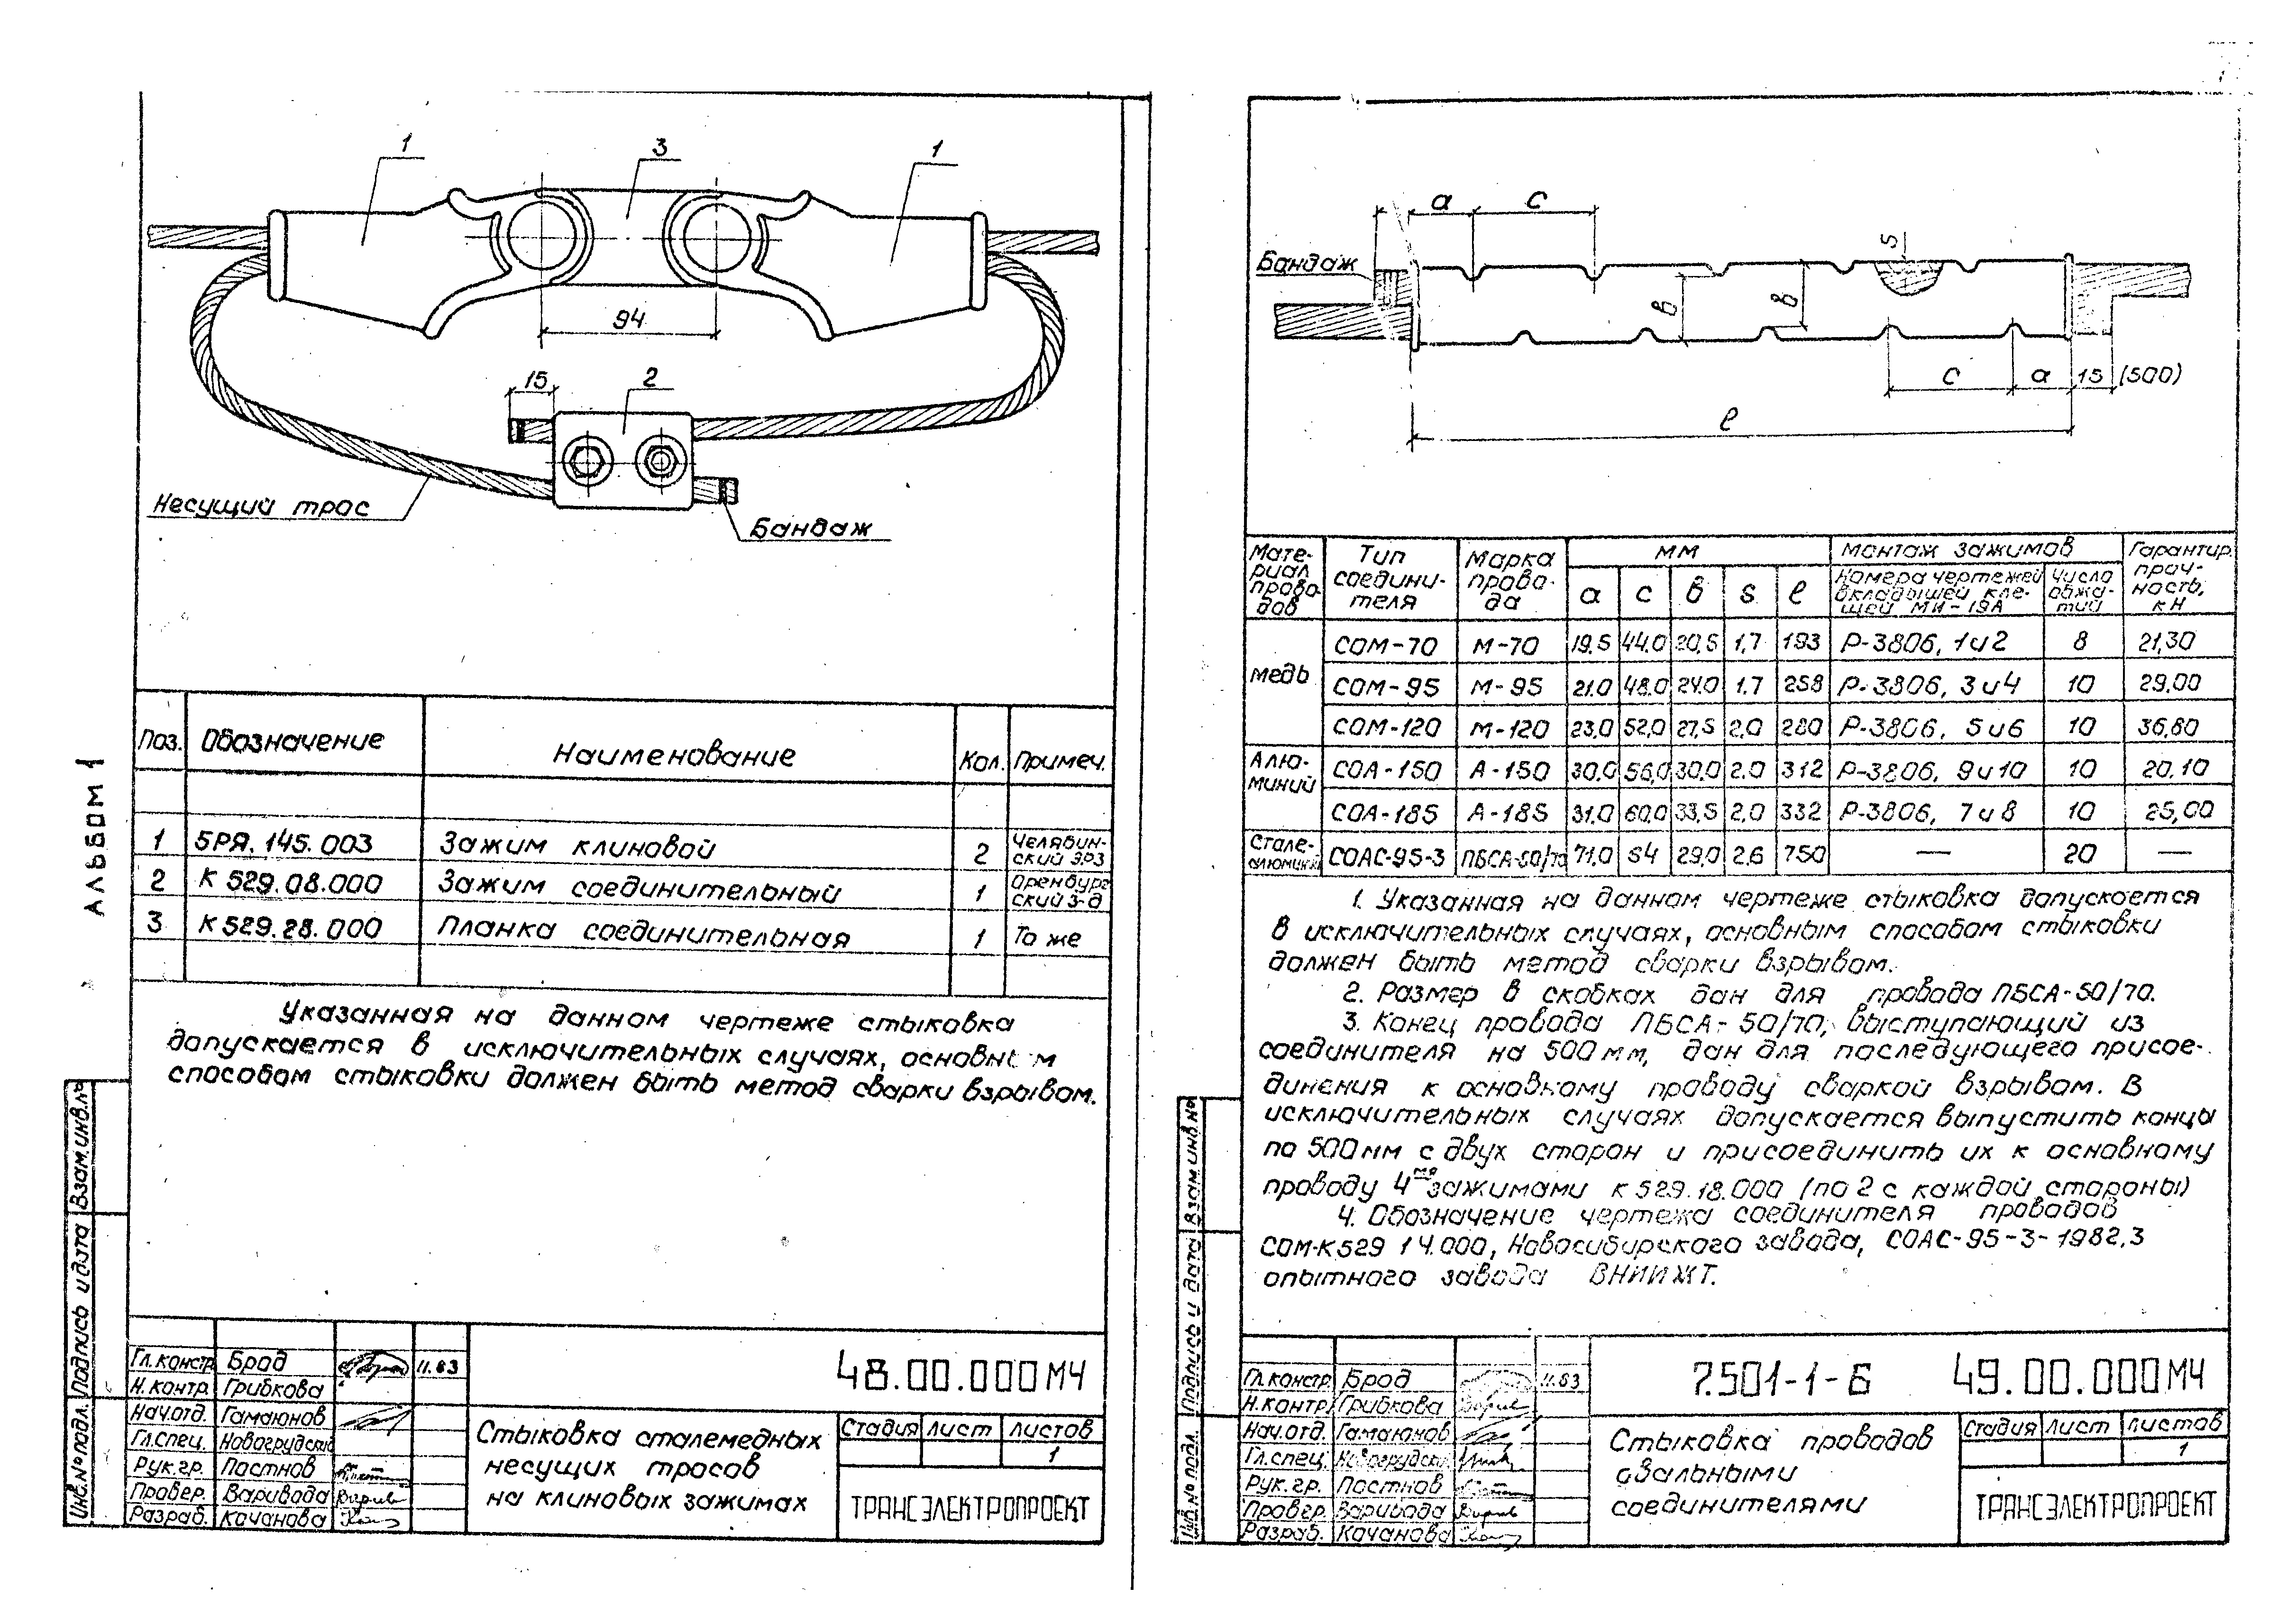 АЛЬБОМ 1
1
3
1
94
15
2
Несущий трос
Бандаж
Поз. Обозначение Наименование Кол. Примеч.
1 5РЯ.145.003 Зажим клиновой 2 Челябинский ЭРЗ
2 К 529.08.000 Зажим соединительный 1 Оренбургский з-д
3 К 529.28.000 Планка соединительная 1 То же
Указанная на данном чертеже стыковка
допускается в исключительных случаях, основным
способом стыковки должен быть метод сварки взрывом.
Инв.№ подл. Подпись и дата Взам.инв.№
Гл.констр. Брод 11.83
Н.контр. Грибкова
Нач.отд. Гамаюнов
Гл.спец. Новогрудский
Рук.гр. Постнов
Провер. Варивода
Разраб. Качанова
48.00.000МЧ
Стыковка сталемедных
несущих тросов
на клиновых зажимах
Стадия Лист Листов
1
ТРАНСЭЛЕКТРОПРОЕКТ
а с
Бандаж
s
в в
с а 15 (500)
ℓ
Материал проводов Тип соединителя Марка провода мм Монтаж зажимов Гарантир. прочность, кН
а с в s ℓ Номера чертежей вкладышей клещей МИ-19А Число обжатий
медь
СОМ-70 М-70 19.5 44.0 20,5 1,7 193 Р-3806, 1и2 8 21,30
СОМ-95 М-95 21.0 48.0 24.0 1.7 258 Р-3806, 3и4 10 29.00
СОМ-120 М-120 23,0 52,0 27,5 2,0 280 Р-3806, 5и6 10 36,80
Алюминий
СОА-150 А-150 30.0 56,0 30,0 2.0 312 Р-3806, 9и10 10 20.10
СОА-185 А-185 31.0 60,0 33,5 2,0 332 Р-3806, 7и8 10 25,00
Сталеалюминий СОАС-95-3 ПБСА-50/70 71,0 54 29,0 2.6 750 — 20 —
1. Указанная на данном чертеже стыковка допускается
в исключительных случаях, основным способом стыковки
должен быть метод сварки взрывом.
2. Размер в скобках дан для провода ПБСА-50/70.
3. Конец провода ПБСА-50/70, выступающий из
соединителя на 500мм, дан для последующего присое-
динения к основному проводу сваркой взрывом. В
исключительных случаях допускается выпустить концы
по 500мм с двух сторон и присоединить их к основному
проводу 4мя зажимами К 529.18.000 (по 2 с каждой стороны)
4. Обозначение чертежа соединителя проводов
СОМ-К529 14.000, Новосибирского завода, СОАС-95-3-1982.3
опытного завода ВНИИЖТ.
Инв.№ подл. Подпись и дата Взам инв.№
Гл.констр. Брод 11.83
Н.контр. Грибкова
Нач.отд. Гамаюнов
Гл.спец. Новогрудский
Рук.гр. Постнов
Провер. Варивода
Разраб. Качанова
7.501-1-Б 49.00.000МЧ
Стыковка проводов
овальными
соединителями
Стадия Лист Листов
1
ТРАНСЭЛЕКТРОПРОЕКТ